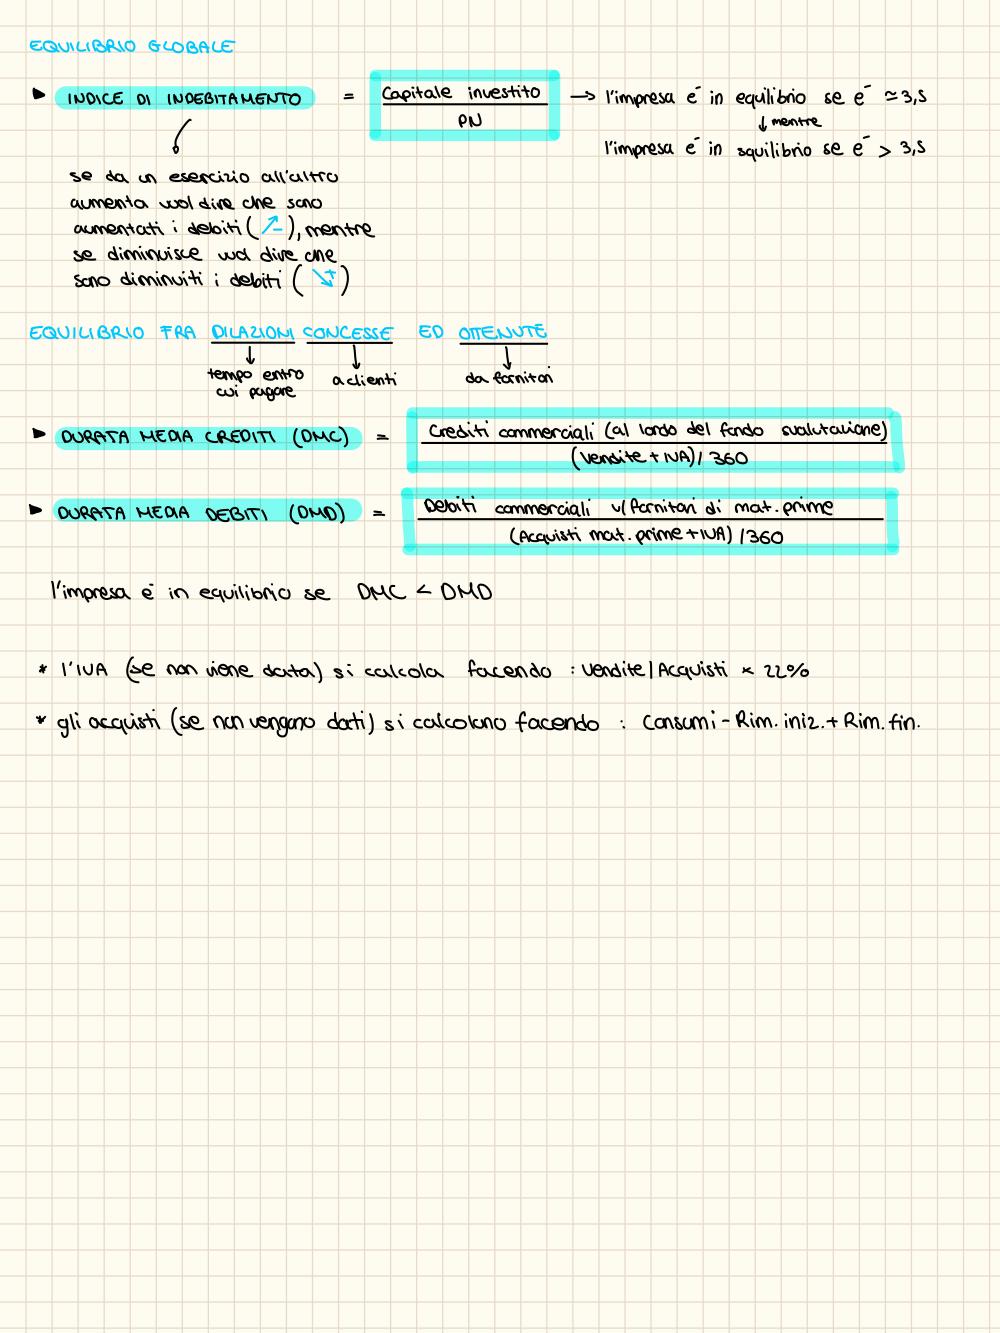 EQUILIBRIO GLOBALE
► INDICE DI INDEBITAMENTO = Capitale investito / PN → l'impresa è in equilibrio se è ≃ 3,5
↓ mentre
l'impresa è in squilibrio se è > 3,5
se da un esercizio all'altro
aumenta vuol dire che sono
aumentati i debiti (↗-), mentre
se diminuisce vuol dire che
sono diminuiti i debiti (↘+)
EQUILIBRIO FRA DILAZIONI CONCESSE ED OTTENUTE
↓ tempo entro cui pagare
↓ a clienti
↓ da fornitori
► DURATA MEDIA CREDITI (DMC) = Crediti commerciali (al lordo del fondo svalutazione) / (Vendite + IVA) / 360
► DURATA MEDIA DEBITI (DMD) = Debiti commerciali v/fornitori di mat. prime / (Acquisti mat. prime + IVA) / 360
l'impresa è in equilibrio se DMC < DMD
* l'IVA (se non viene data) si calcola facendo : Vendite/Acquisti × 22%
* gli acquisti (se non vengono dati) si calcolano facendo : Consumi - Rim. iniz. + Rim. fin.